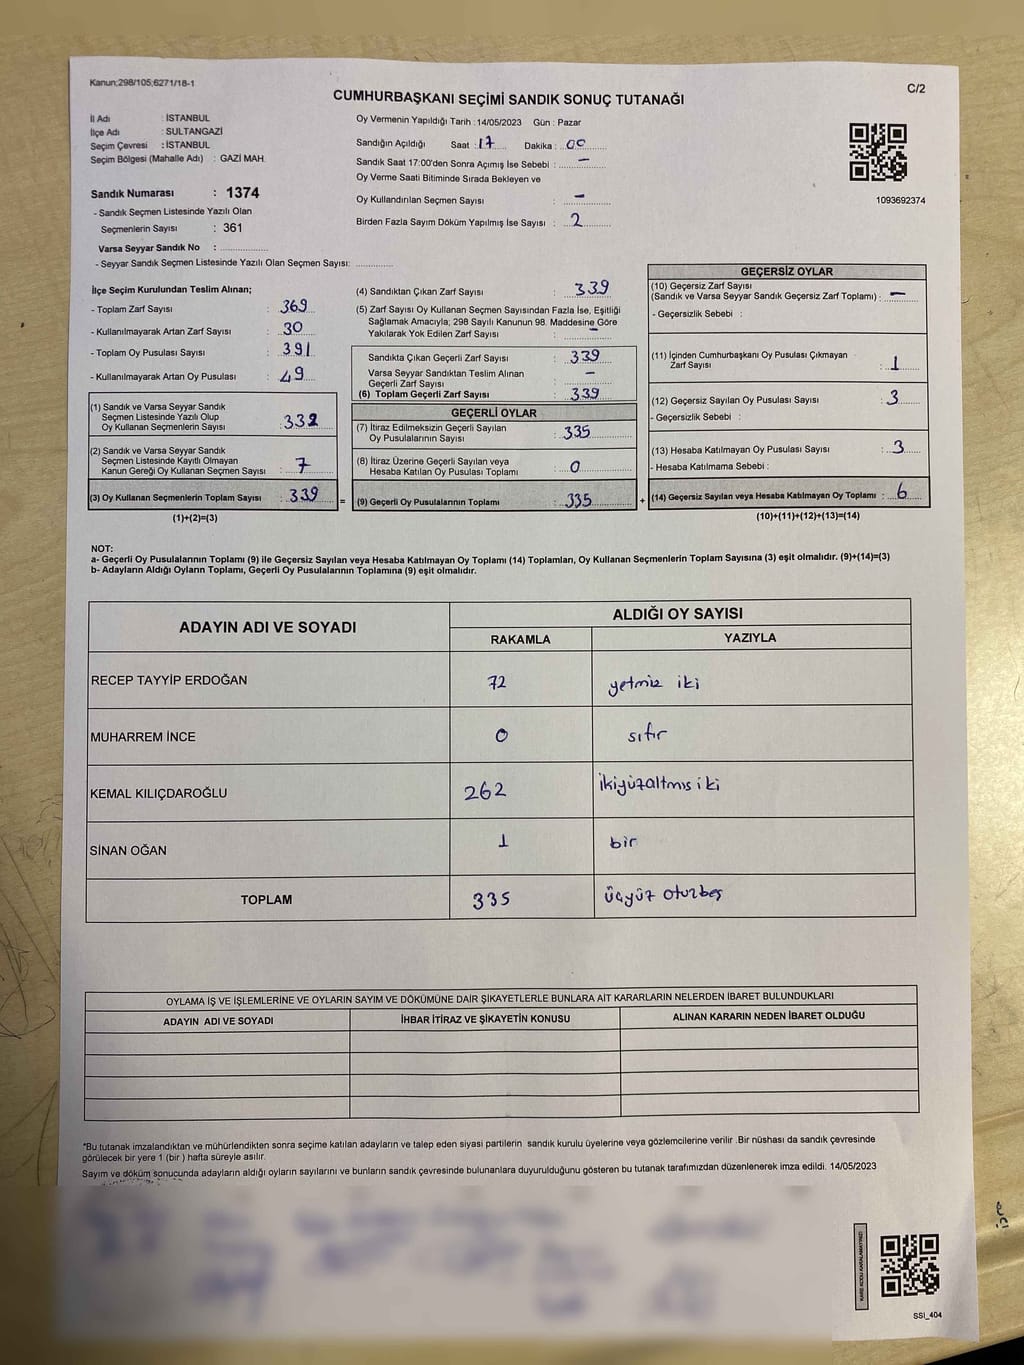 Kanun;298/105;6271/18-1
C/2
CUMHURBAŞKANI SEÇİMİ SANDIK SONUÇ TUTANAĞI
İl Adı : İSTANBUL
İlçe Adı : SULTANGAZİ
Seçim Çevresi : İSTANBUL
Seçim Bölgesi (Mahalle Adı) : GAZİ MAH.
Sandık Numarası : 1374
- Sandık Seçmen Listesinde Yazılı Olan
Seçmenlerin Sayısı : 361
Varsa Seyyar Sandık No : ..................
- Seyyar Sandık Seçmen Listesinde Yazılı Olan Seçmen Sayısı: ..............
Oy Vermenin Yapıldığı Tarih : 14/05/2023 Gün : Pazar
Sandığın Açıldığı Saat : 17 Dakika : 00
Sandık Saat 17:00'den Sonra Açımış İse Sebebi : —
Oy Verme Saati Bitiminde Sırada Bekleyen ve
Oy Kullandırılan Seçmen Sayısı : —
Birden Fazla Sayım Döküm Yapılmış İse Sayısı : 2
1093692374
İlçe Seçim Kurulundan Teslim Alınan;
- Toplam Zarf Sayısı : 369
- Kullanılmayarak Artan Zarf Sayısı : 30
- Toplam Oy Pusulası Sayısı : 391
- Kullanılmayarak Artan Oy Pusulası : 49
(1) Sandık ve Varsa Seyyar Sandık
Seçmen Listesinde Yazılı Olup
Oy Kullanan Seçmenlerin Sayısı : 332
(2) Sandık ve Varsa Seyyar Sandık
Seçmen Listesinde Kayıtlı Olmayan
Kanun Gereği Oy Kullanan Seçmen Sayısı : 7
(3) Oy Kullanan Seçmenlerin Toplam Sayısı : 339
(1)+(2)=(3)
(4) Sandıktan Çıkan Zarf Sayısı : 339
(5) Zarf Sayısı Oy Kullanan Seçmen Sayısından Fazla İse, Eşitliği
Sağlamak Amacıyla; 298 Sayılı Kanunun 98. Maddesine Göre
Yakılarak Yok Edilen Zarf Sayısı : —
Sandıkta Çıkan Geçerli Zarf Sayısı : 339
Varsa Seyyar Sandıktan Teslim Alınan
Geçerli Zarf Sayısı : —
(6) Toplam Geçerli Zarf Sayısı : 339
GEÇERLİ OYLAR
(7) İtiraz Edilmeksizin Geçerli Sayılan
Oy Pusulalarının Sayısı : 335
(8) İtiraz Üzerine Geçerli Sayılan veya
Hesaba Katılan Oy Pusulası Toplamı : 0
= (9) Geçerli Oy Pusulalarının Toplamı : 335
GEÇERSİZ OYLAR
(10) Geçersiz Zarf Sayısı
(Sandık ve Varsa Seyyar Sandık Geçersiz Zarf Toplamı) : —
- Geçersizlik Sebebi :
(11) İçinden Cumhurbaşkanı Oy Pusulası Çıkmayan
Zarf Sayısı : 1
(12) Geçersiz Sayılan Oy Pusulası Sayısı : 3
- Geçersizlik Sebebi :
(13) Hesaba Katılmayan Oy Pusulası Sayısı : 3
- Hesaba Katılmama Sebebi :
+ (14) Geçersiz Sayılan veya Hesaba Katılmayan Oy Toplamı : 6
(10)+(11)+(12)+(13)=(14)
NOT:
a- Geçerli Oy Pusulalarının Toplamı (9) ile Geçersiz Sayılan veya Hesaba Katılmayan Oy Toplamı (14) Toplamları, Oy Kullanan Seçmenlerin Toplam Sayısına (3) eşit olmalıdır. (9)+(14)=(3)
b- Adayların Aldığı Oyların Toplamı, Geçerli Oy Pusulalarının Toplamına (9) eşit olmalıdır.
ADAYIN ADI VE SOYADI
ALDIĞI OY SAYISI
RAKAMLA YAZIYLA
RECEP TAYYİP ERDOĞAN 72 yetmiş iki
MUHARREM İNCE 0 sıfır
KEMAL KILIÇDAROĞLU 262 ikiyüzaltmış iki
SİNAN OĞAN 1 bir
TOPLAM 335 üçyüz otuzbeş
OYLAMA İŞ VE İŞLEMLERİNE VE OYLARIN SAYIM VE DÖKÜMÜNE DAİR ŞİKAYETLERLE BUNLARA AİT KARARLARIN NELERDEN İBARET BULUNDUKLARI
ADAYIN ADI VE SOYADI İHBAR İTİRAZ VE ŞİKAYETİN KONUSU ALINAN KARARIN NEDEN İBARET OLDUĞU
*Bu tutanak imzalandıktan ve mühürlendikten sonra seçime katılan adayların ve talep eden siyasi partilerin sandık kurulu üyelerine veya gözlemcilerine verilir .Bir nüshası da sandık çevresinde
görülecek bir yere 1 (bir ) hafta süreyle asılır.
Sayım ve döküm sonucunda adayların aldığı oyların sayılarını ve bunların sandık çevresinde bulunanlara duyurulduğunu gösteren bu tutanak tarafımızdan düzenlenerek imza edildi. 14/05/2023
KARE KODU KARALAMAYINIZ!
SSI_404